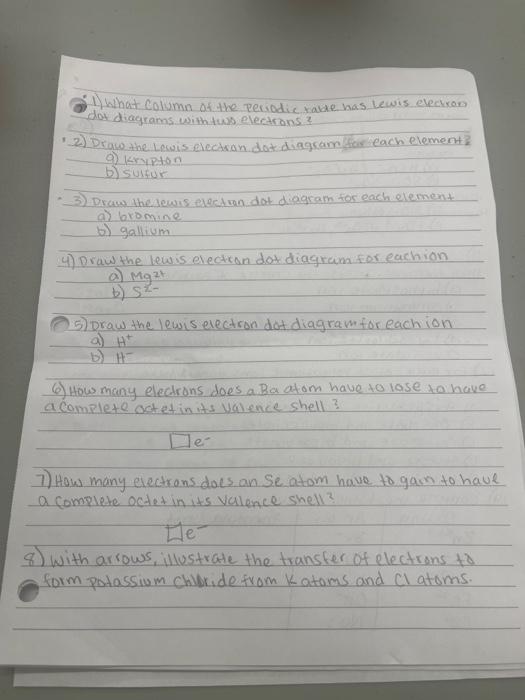 1) What Column of the Periodic table has Lewis electron
dot diagrams with two electrons?
2) Draw the Lewis electron dot diagram for each element?
a) Krypton
b) Sulfur
3) Draw the lewis electron dot diagram for each element
a) bromine
b) gallium
4) Draw the lewis electron dot diagram for each ion
a) Mg²⁺
b) S²⁻
5) Draw the lewis electron dot diagram for each ion
a) H⁺
b) H⁻
6) How many electrons does a Ba atom have to lose to have
a complete octet in its valence shell?
□e⁻
7) How many electrons does an Se atom have to gain to have
a complete octet in its valence shell?
□e⁻
8) With arrows, illustrate the transfer of electrons to
form potassium Chloride from K atoms and Cl atoms.